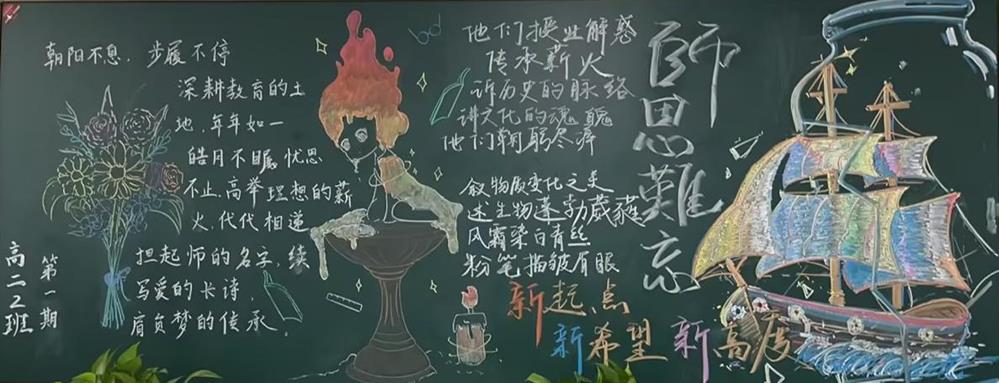 朝阳不息，步履不停
深耕教育的土
地，年年如一
皓月不瞩，忧思
不止，高举理想的薪
火，代代相递
担起师的名字，续
写爱的长诗，
肩负梦的传承。
高二2班
第一期
bd
他们授业解惑
传承薪火
诉历史的脉络
讲文化的魂魄
他们鞠躬尽瘁
叙物质变化之美
述生物蓬勃葳蕤
风霜染白青丝
粉笔描皱眉眼
師恩難忘
新起点
新希望 新高度